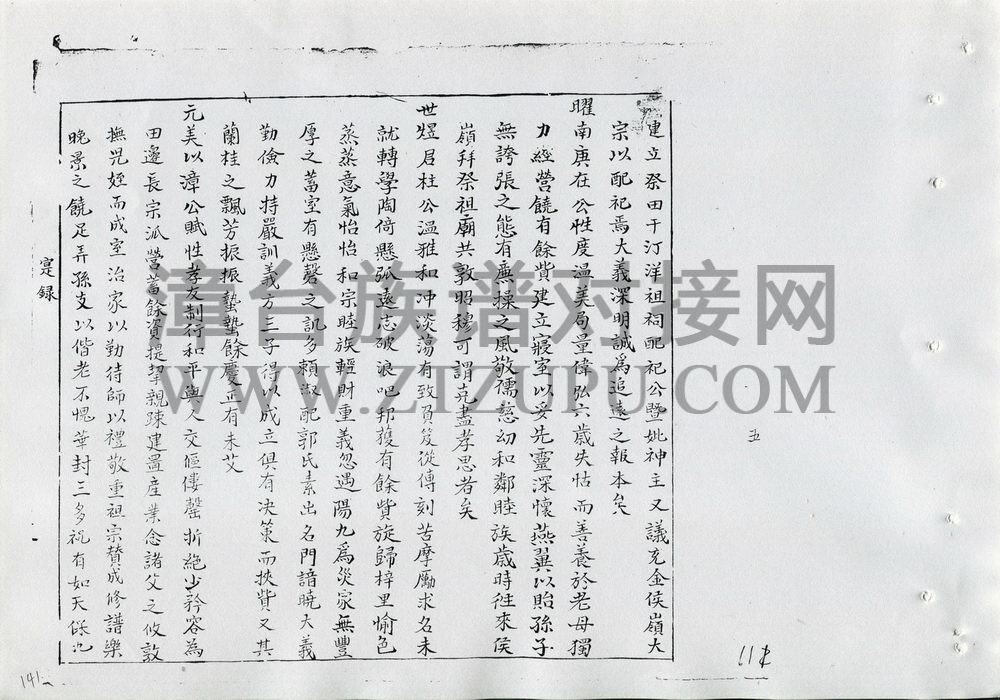 建立祭田于汀洋祖祠配祀公暨妣神主又議充金侯嶺大
宗以配祀焉大義深明誠為追遠之報本矣
曜南庚在公性度溫美局量偉弘六歲失怙而善養於老母獨
力經營饒有餘貲建立寢室以妥先靈深懷燕翼以貽孫子
無誇張之態有廉操之風敬孺慈幼和鄰睦族歲時往來侯
嶺拜祭祖廟共敦昭穆可謂克盡孝思者矣
世煜君柱公溫雅和冲淡蕩有致負笈從傅刻苦摩勵求名未
就轉學陶倚懸弧遠志破浪吧邦獲有餘貲旋歸梓里愉色
蒸蒸意氣怡怡和宗睦族輕財重義忽遇陽九為災家無豐
厚之蓄室有懸磬之訊多賴淑配郭氏素出名門諳曉大義
勤儉力持嚴訓義方三子得以成立俱有決策而挾貲又其
蘭桂之飄芳振振蟄蟄餘慶正有未艾
元美以漳公賦性孝友制行和平與人交傴僂罄折絕少矜容為
田邊長宗派營蓄餘資提挈親疎建置產業念諸父之攸敦
撫兄姪而成室治家以勤待師以禮敬重祖宗贊成修譜樂
晚景之饒足弄孫支以偕老不愧華封三多祝有如天保九
寔録
五
141
漳台族谱对接网
WWW.ZTZUPU.COM